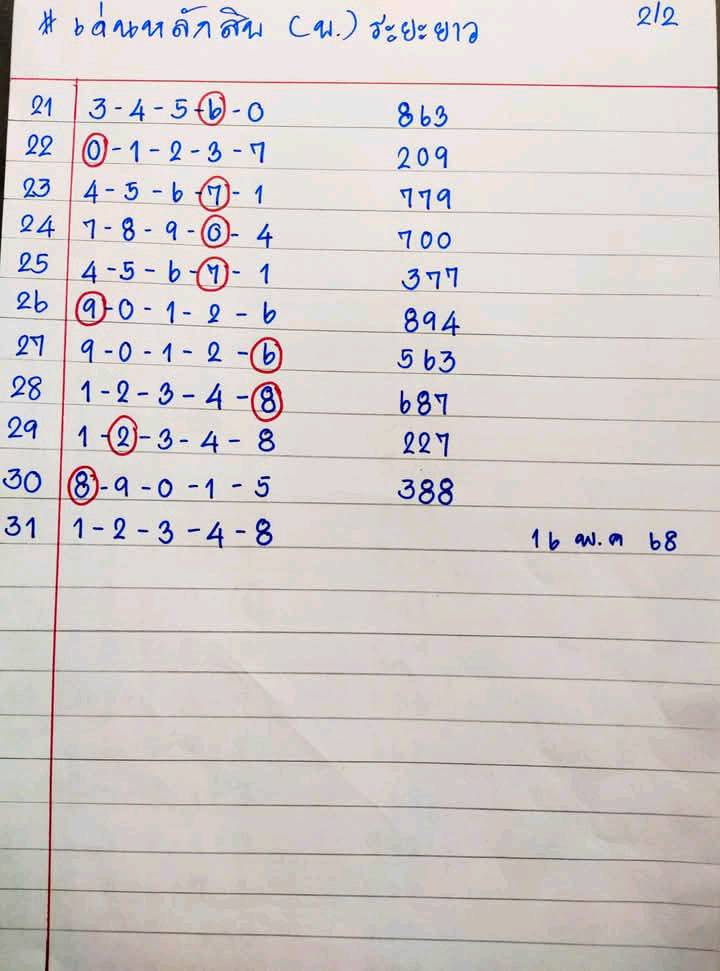 # เด่นหลักสิบ (พ.) ระยะยาว 2/2
21 3-4-5-6-0 863
22 0-1-2-3-7 209
23 4-5-6-7-1 779
24 7-8-9-0-4 700
25 4-5-6-7-1 377
26 9-0-1-2-6 894
27 9-0-1-2-6 563
28 1-2-3-4-8 687
29 1-2-3-4-8 227
30 8-9-0-1-5 388
31 1-2-3-4-8 16 พ.ค 68